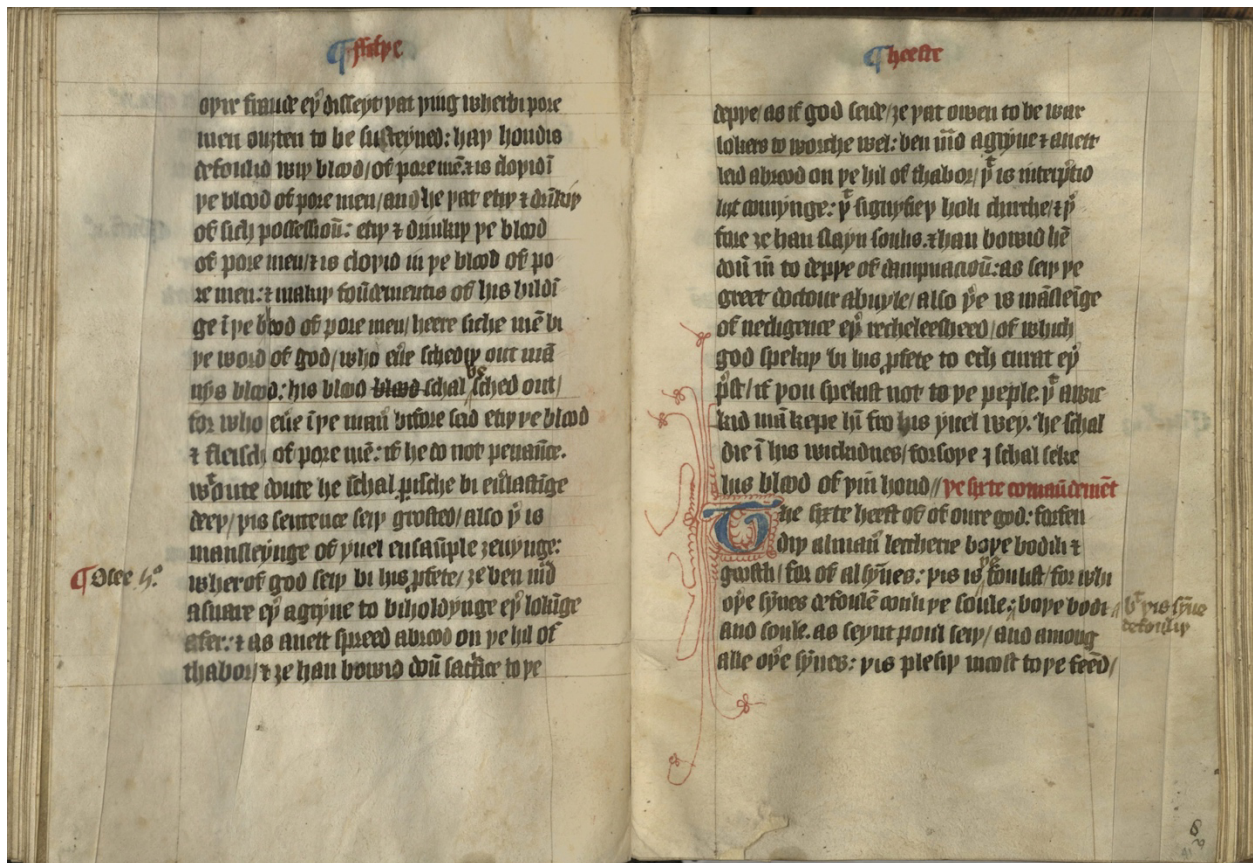 ¶ fifþe
oþir fraude eþ̉ disseyt þat þing wherbi pore
men ouȝten to be susteyned: hay hondis
defoulid wiþ blood/ of pore mē. ⁊ is cloþid ī
þe blood of pore men/ and he þat etiþ ⁊ drīkiþ
of sich possessioū: etiþ ⁊ drinkiþ þe blood
of pore men/ ⁊ is cloþid in þe blood of po
re men: ⁊ makiþ foūdementis of his bildī
ge ī þe blood of pore men/ heere siche mē bi
þe word of god/ who eu̾e schediþ out mā
nys blood: his blood blood schal be sched out/
for who eu̾e ī þe man̄ bifore seid etiþ þe blood
⁊ fleisch of pore mē: if he do not penaūce.
wͭoute doute he schal ꝑische bi eu̾lastīge
deeþ/ þis sentence seiþ grosted/ also þ̾ is
mansleynge of yuel ensaūple ȝeuynge:
wherof god seiþ bi his ꝓfete/ ȝe ben mͣd
a snare eþ̾ a gryne to biholdynge eþ̾ lokīge
afer: ⁊ as a nett spreed abrood on þe hil of
thabor/ ⁊ ȝe han bowid doū sac̾fice to þe
¶ Osee 5.º
¶ heeste
deppe/ as if god seide/ ȝe þat owen to be war
lokers to worche wel: ben mͣd a gryne ⁊ a nett
leid abrood on þe hil of thabor/ þͭ is int̾p̾tid
liȝt comynge: þͭ signyfieþ holi chirche/ ⁊ þ̾
fore ȝe han slayn soulis. ⁊ han bowid hē
doū in to deppe of dampnacioū: as seiþ þe
greet doctour abuyle/ also þ̾e is māsleīge
of necligence eþ̾ recheleesheed/ of which
god spekiþ bi his ꝓfete to ech curat eþ̾
p̾st/ if þou spekist not to þe peple. þͭ a wic
kid mā kepe hī fro his yuel wey. he schal
die ī his wickidnes/ forsoþe I schal seke
his blood of þin hond// þe sixte comaūdemēt
The sixte heest of of oure god: forfen
diþ al man̄ leccherie boþe bodili ⁊
goostli/ for of al synnes: þis is þe foulist/ for whi
oþ̾e synes defoulē oonli þe soule:,, boþe bodi
and soule. as seynt poul seiþ/ and among
alle oþ̾e synes: þis plesiþ moost to þe feēd/
// bͭ þis syne
defouliþ